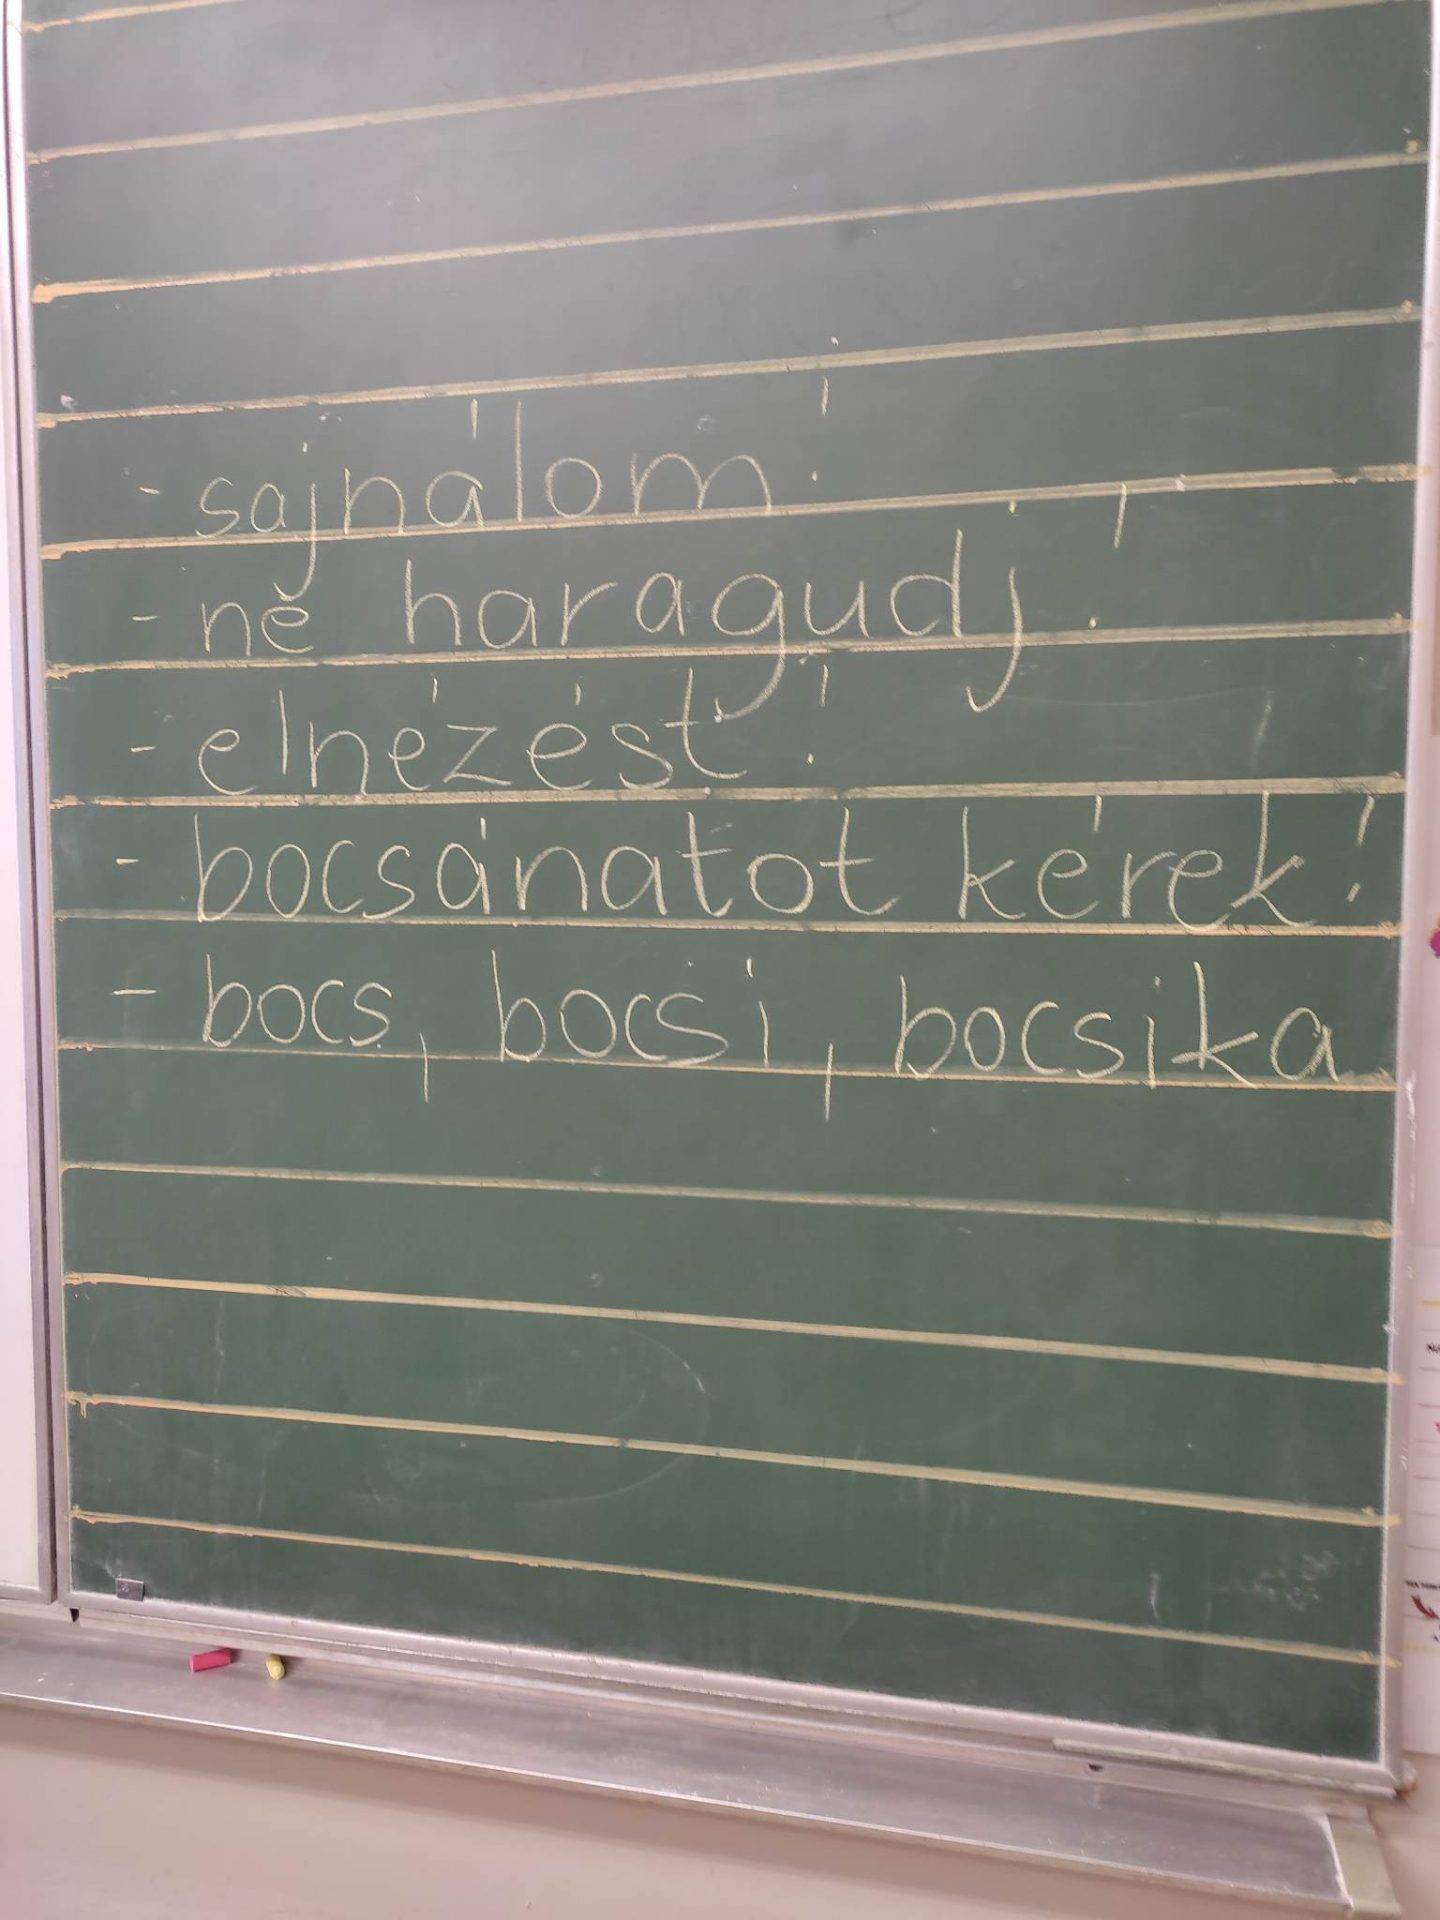 - sajnálom!
- ne haragudj!
- elnézést!
- bocsánatot kérek!
- bocs, bocsi, bocsika